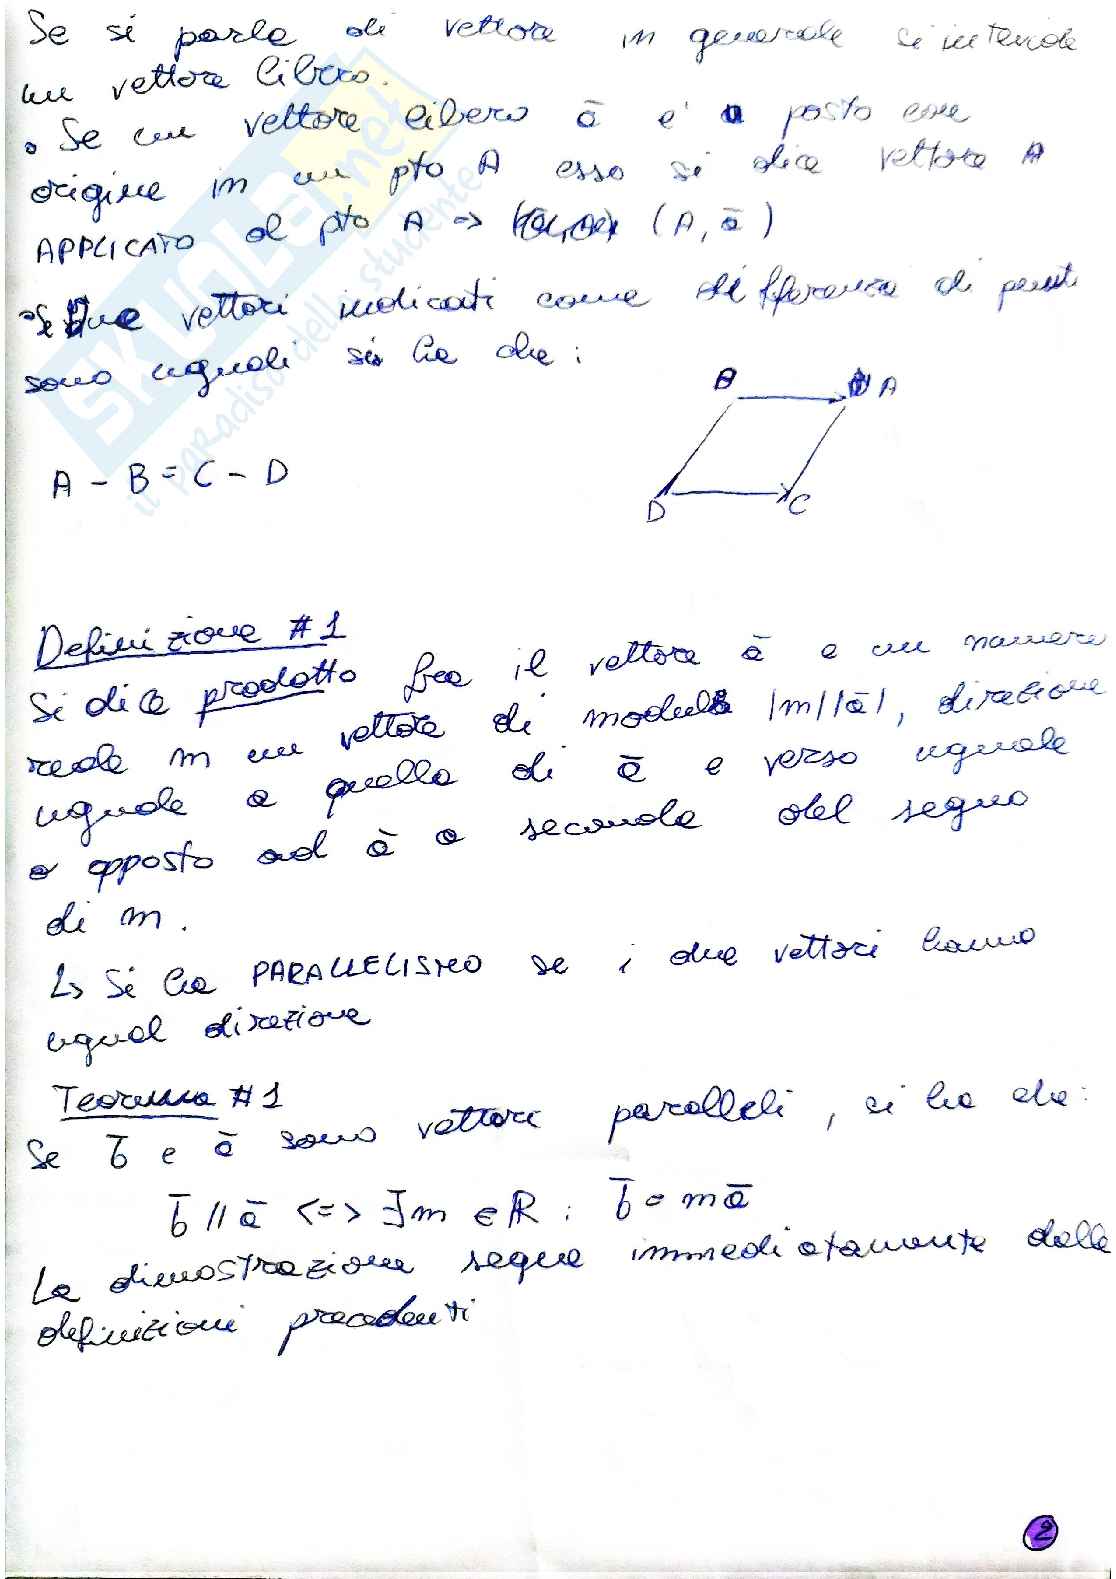 Se si parla di vettore in generale si intende
un vettore libero.
• Se un vettore libero ā e' posto con
origine in un pto A esso si dice vettore
APPLICATO al pto A => (A, ā)
• Se due vettori indicati come differenza di punti
sono uguali si ha che :
B A
A - B = C - D
D C
Definizione #1
Si dice prodotto fra il vettore ā e un numero
reale m un vettore di modulo |m||ā|, direzione
uguale a quella di ā e verso uguale
o opposto ad ā a seconda del segno
di m.
↳ Si ha PARALLELISMO se i due vettori hanno
ugual direzione
Teorema #1
Se b̄ e ā sono vettori paralleli, si ha che:
b̄ // ā <=> ∃ m ∈ ℝ : b̄ = m ā
La dimostrazione segue immediatamente dalle
definizioni precedenti
2
SKUOLA.net
il paradiso dello studente